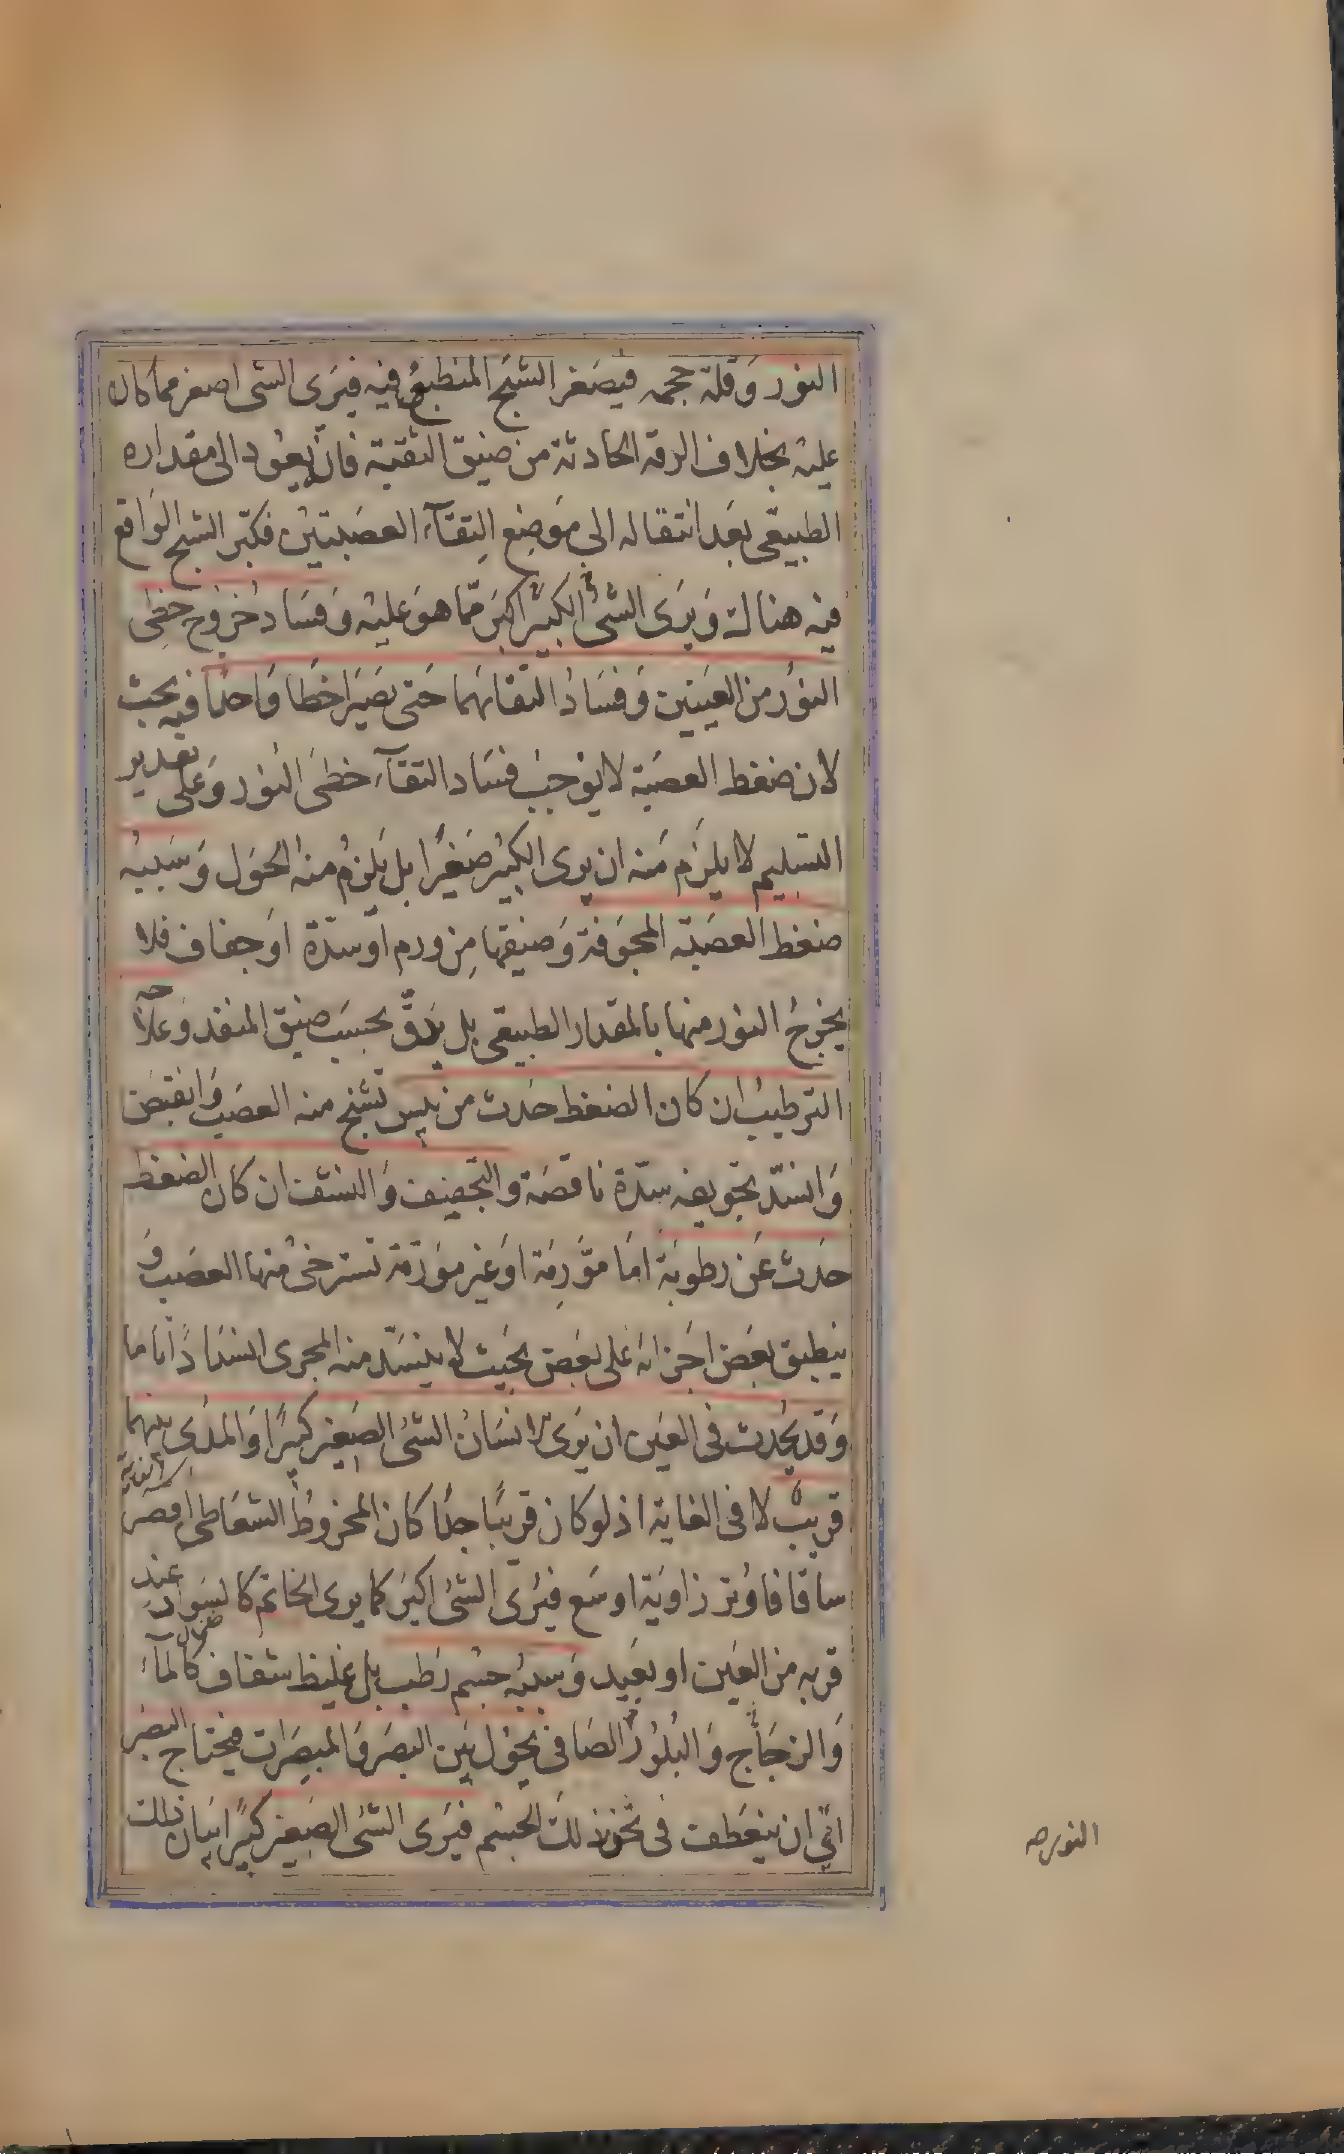 النور وَقلة حجمه فيصَغر الشبَح المنطبعُ فيه فيَرى الشى اصغر مما كان
عليه بخلاف الرقة الحادثة من ضيق الثقبة فانه يعُود الى مقداره
الطبيعى بعَد انتقاله الى مَوضِع التِقَآء العصَبتيَن فكبّر الشبح الوَاقع
فيه هناك وَيَرَى الشئُ الكبيَر اكبَر ممّا هوَ عليْه وَفسَاد خرُوج خطى
النوُر من العيَنين وَفسَادُ التقائهَما حَتى يصَيَرا خطًا وَاحدًا فيه بحث
لان ضغط العصَبة لا يوُجبْ فسَاد التقآء خطىَ النور وَعلى تقدير
التسَليم لا يلزَم مَنه ان يرى الكبيَر صَغيرًا بل يَلزمُ منهُ الحَوَل وَسَببُه
ضغط العصَبة المجوَفة وَضيقها مِن ورم اوَسدّة اوَجفاف فلا
يخرجُ النور منها بالمقدار الطبيعى بل يَدقّ بحسَب ضيق المنفذ وَعلاجه
الترطيبُ ان كان الضغط حدَث من يبَس تشنج منه العصَب وَانقبَض
وَانسَدّ تجوَيفه سدّة ناقصَة والتجفيف وَالنشف ان كان الضغط
حدَث عَن رطوبَة امَا موَّرِمَة اوَغير موَرّمة تسترخىُ منها العصَب وَ
ينطبق بعَض اجَزائه عَلى بعَض بحَيث لا ينسَدّ منه المجرى انسدَادًا تاما
وَقد يحُدث فى العَين ان يَرَى الانسَان الشئُ الصَغير كبَيرًا وَالمدَى بينهما
قريبٌ لا فى الغاية اذ لو كان قريبًا جدًا كان المخروُط الشعَاعى اقصَر
سَاقا فاوَتر زاويَة اوسَع فيَرىَ الشئُ اكبَر كما يرى الخاتم كالسَوار عنِد
قربه من العَين او بعَيد وَسَببُه جسْم رَطب بل غليظ شفاف كالمآء
وَالزجَاج وَالبُلورْ الصَافى يحوُل بَين البصَر وَالمبصَرات فيحَتاج البصَر
الى ان ينعَطف فى ثخن ذلكَ الجسْم فيَرى الشئ الصَغير كبيًرا بيَان ذلك
النور صح